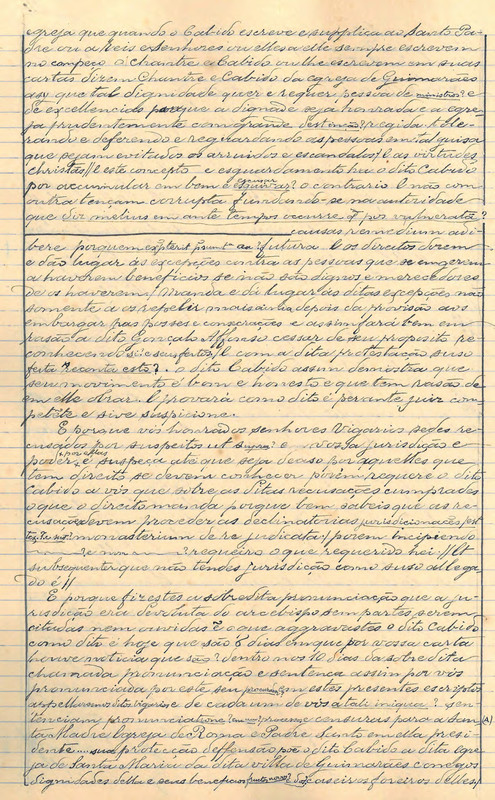 egreja que quando o Cabido escreve e supplica ao Santo Pa-
dre ou a Reis e Senhores ou elles a elle sempre escrevem
no começo o Chantre e Cabido ou lhe escrevem em suas
cartas dizem Chantre e Cabido da egreja de Guimarães
asy que tal dignidade quer e requer pessoa de ministrar? e
de excellencias porque a dignade seja honrada e a egre-
ja prudentemente com grande destinão? regida tole-
rando e deferendo e reguardando as pessoas em tal guisa
que sejam evitados os arruidos e escandalos, e as virtudes
christãs // e este concepto e esguardamento ha o dito Cabido
por accumular em bem e esquivar? o contrario e não com
outra tençam corrupta fundando-se na autoridade
que diz melius em ante tempos occurre
causas remedium adi-
bere porquem futura e os direitos dizem
e dão lugar ás excepções contra as pessoas que se ingerem
a haverem beneficios se não são dignos e merecedores
de os haverem / Manda e dá lugar ás ditas excepções não
somente a os repelir mais ainda depois da provisão aos
embargar nas posses e consecrações e assim fará bem em
rasão a dito Gonçalo Affonso cessar de seu proposito re-
conhecendo si e seus feitos / e com a dita protestação suso
feita recontu esto? o dito Cabido assim demostra que
seu movimento é bom e honesto e que tem rasão de
em elle obrar. E provará como dito é perante juiz com-
petete e sive suspicione.
E porque vós honrados senhores Vigarios sedes re-
cusados por suspeitos ut supra? e vossa jurisdicção e
poder é suspeça até que seja deciso por aquelles que
de direito se devem conhecer porém requere o dito
Cabido a vós que sobre as ditas recusações cumprades
o que o direito manda porque bem sabeis que as re-
cusações devem proceder as declinatorias jurisdicionaes
monasterium de re judicata / porem incipiendo
requeiro o que requerido hei // Et
subsequenter que não tendes jurisdicção como suso allega-
do é //
E porque fizestes a sobredita pronunciação que a ju-
risdicção era devoluta do arcebispo sem partes serem
citadas nem ouvidas e o que aggravastes o dito Cabido
como dito é hoje que são 8 dias em que por vossa carta
houve noticia que são? dentro nos 10 dias da sobredita
chamada pronunciação e sentença assim por vós
pronunciada por este seu procurador? em estes presentes escriptos
e de cada um de vós a tali iniqua? sen-
tenciam pronunciatione censuras para a San- (A)
ta Madre Egreja de Roma e Padre Santo em ella presi-
dente .... sua protecção deffensão poe o dito Cabido a dita egre-
ja de Santa Maria da dita villa de Guimarães conegos
Dignidades della e seus beneficios caseiros foreiros delles,